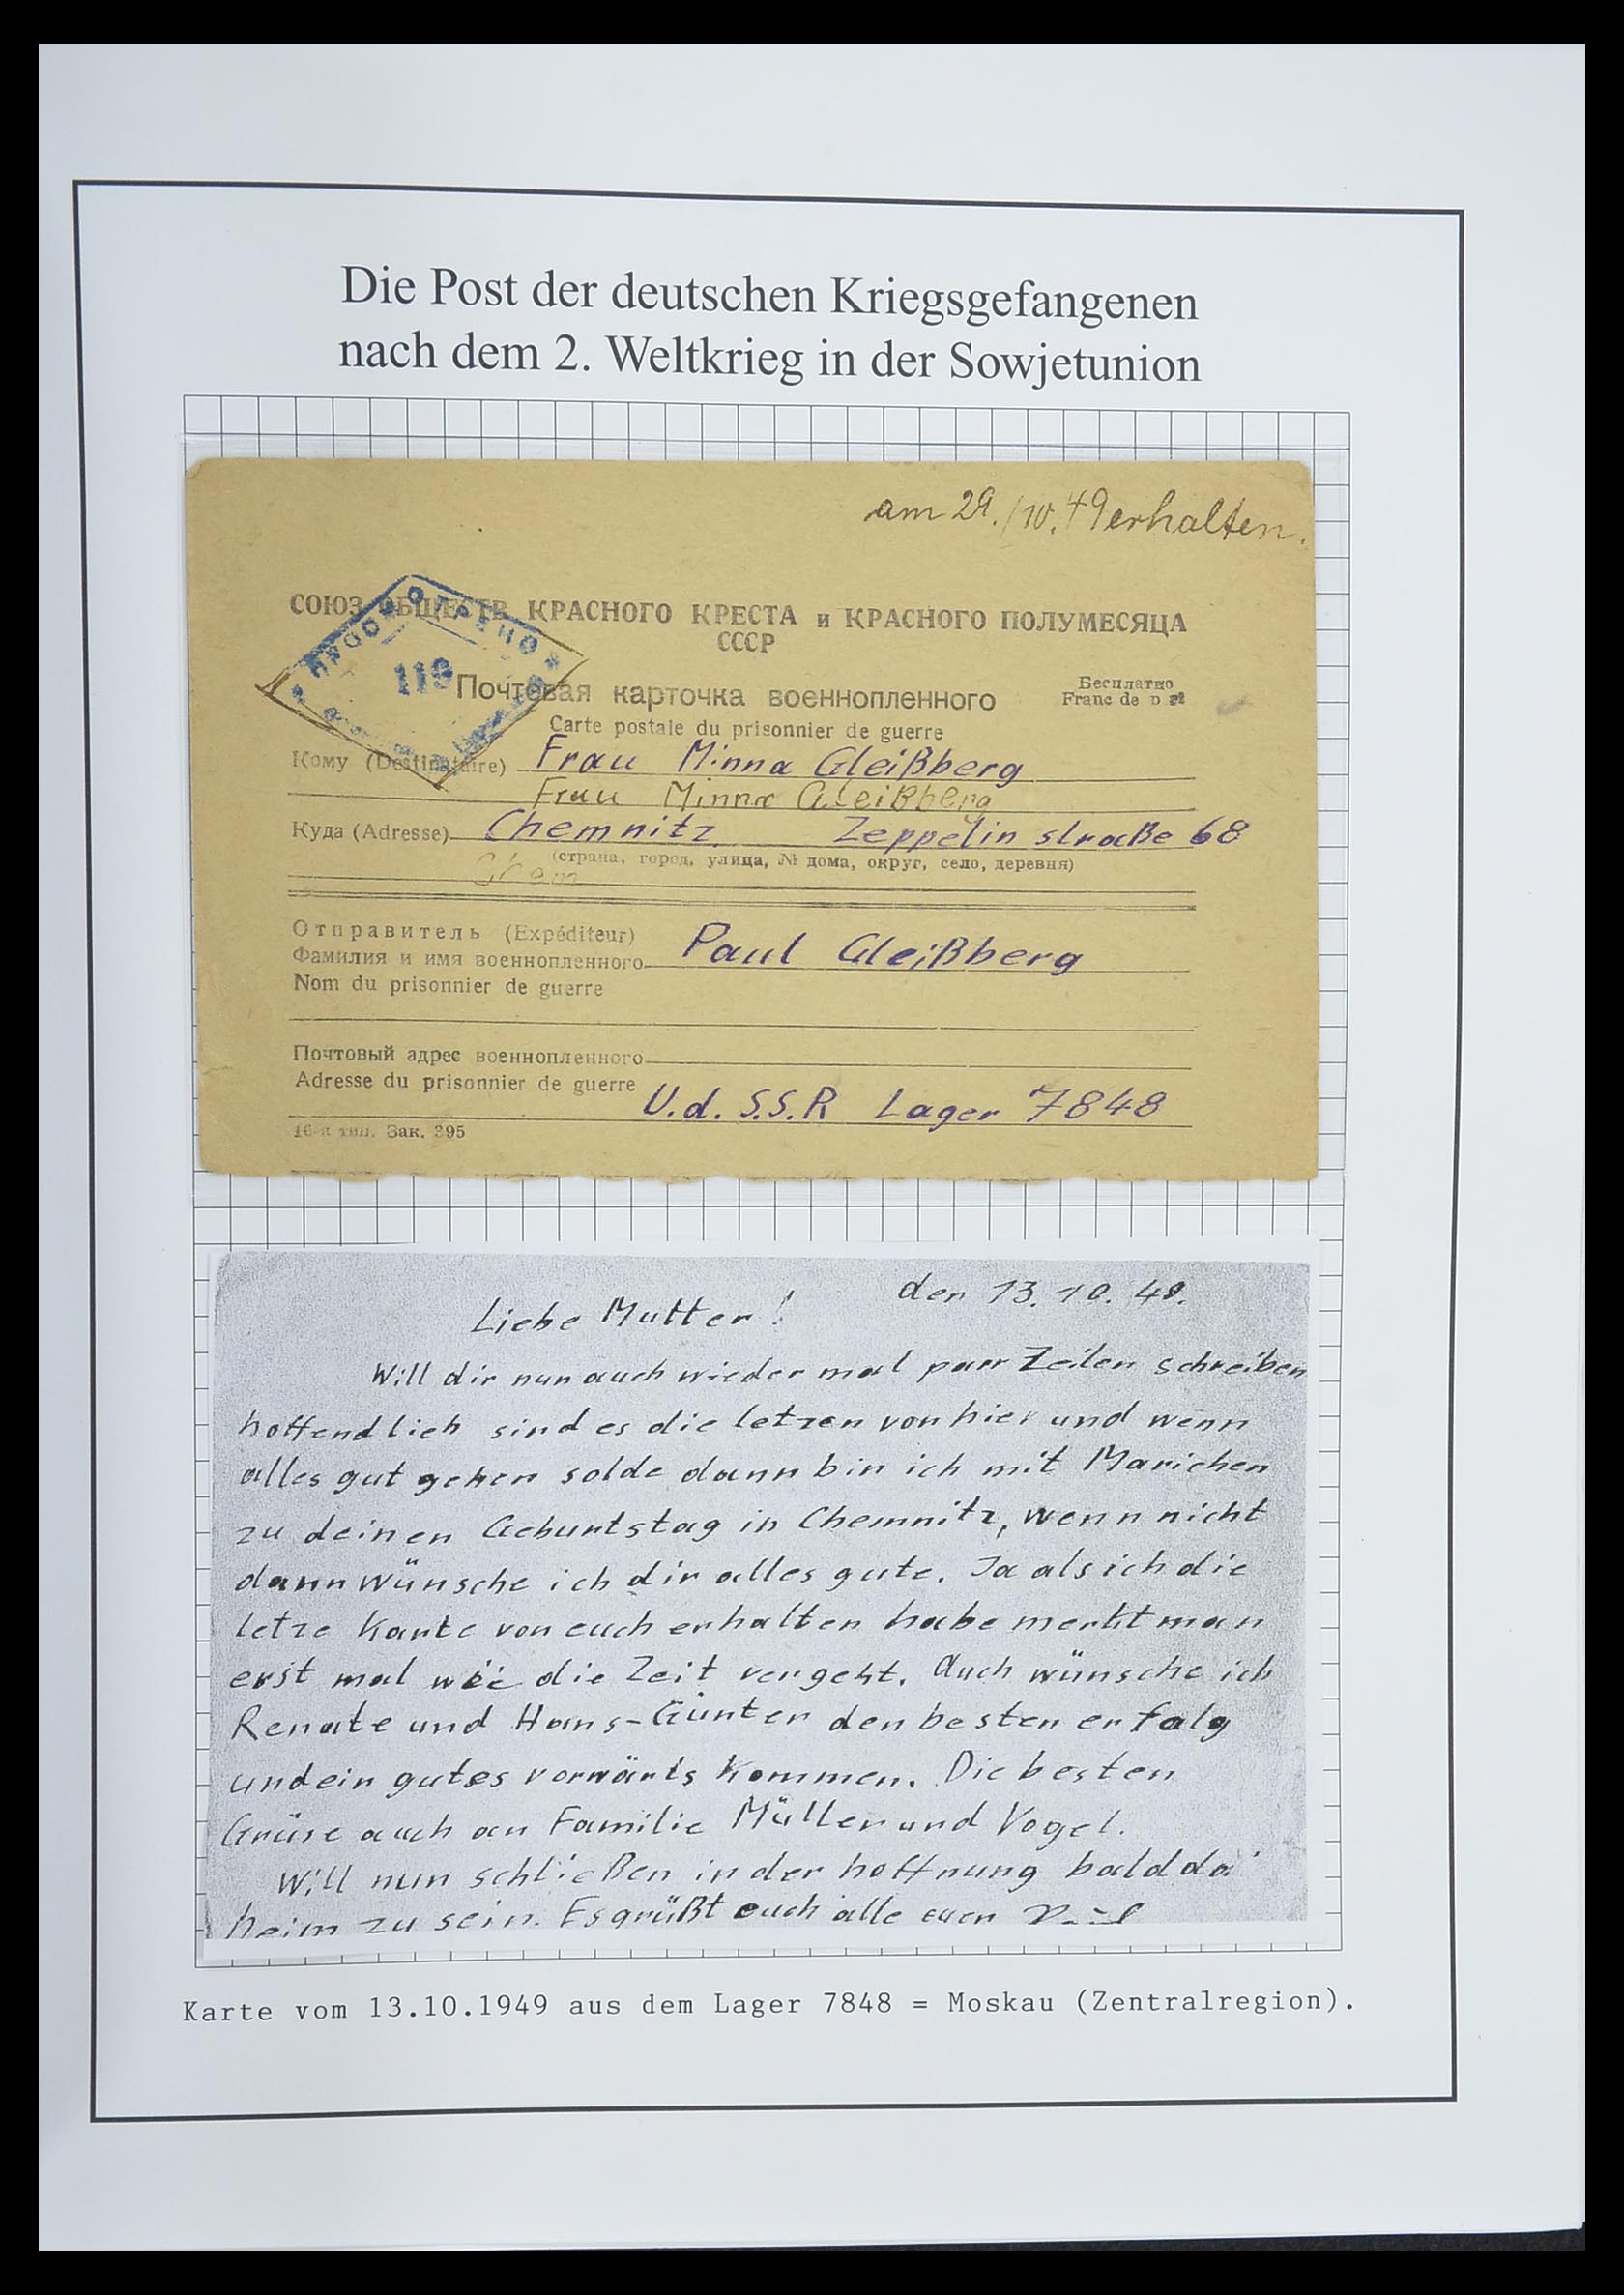 Die Post der deutschen Kriegsgefangenen
nach dem 2. Weltkrieg in der Sowjetunion
am 29./10.49 erhalten.
СОЮЗ ОБЩЕСТВ КРАСНОГО КРЕСТА и КРАСНОГО ПОЛУМЕСЯЦА
СССР
ПРОСМОТРЕНО
119
Почтовая карточка военнопленного
Бесплатно
Franc de
Carte postale du prisonnier de guerre
Кому (Destinataire) Frau Minna Gleißberg
Frau Minna Gleißberg
Куда (Adresse) Chemnitz, Zeppelin straße 68
(страна, город, улица, № дома, округ, село, деревня)
Chem
Отправитель (Expéditeur)
Фамилия и имя военнопленного Paul Gleißberg
Nom du prisonnier de guerre
Почтовый адрес военнопленного
Adresse du prisonnier de guerre U.d.S.S.R Lager 7848
16-я тип. Зак. 395
den 13.10.49.
Liebe Mutter!
Will dir nun auch wieder mal parr Zeilen schreiben
hoffendlich sind es die letzen von hier und wenn
alles gut gehen solde dann bin ich mit Marichen
zu deinen Geburtstag in Chemnitz, wenn nicht
dann wünsche ich dir alles gute. Ja als ich die
letze Karte von euch erhalten habe merkt man
erst mal wie die Zeit vergeht. Auch wünsche ich
Renate und Hans-Günter den besten erfalg
und ein gutes vorwärts kommen. Die besten
Grüse auch an Familie Müller und Vogel.
Will nun schließen in der hoffnung bald da
heim zu sein. Es grüßt euch alle euer Paul
Karte vom 13.10.1949 aus dem Lager 7848 = Moskau (Zentralregion).